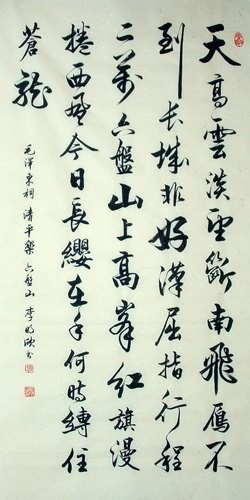 天高雲淡望斷南飛雁不
到长城非好漢屈指行程
二萬六盤山上高峯紅旗漫
捲西風今日長纓在手何時縛住
蒼龍
毛澤東詞 清平樂 六盤山 李明书